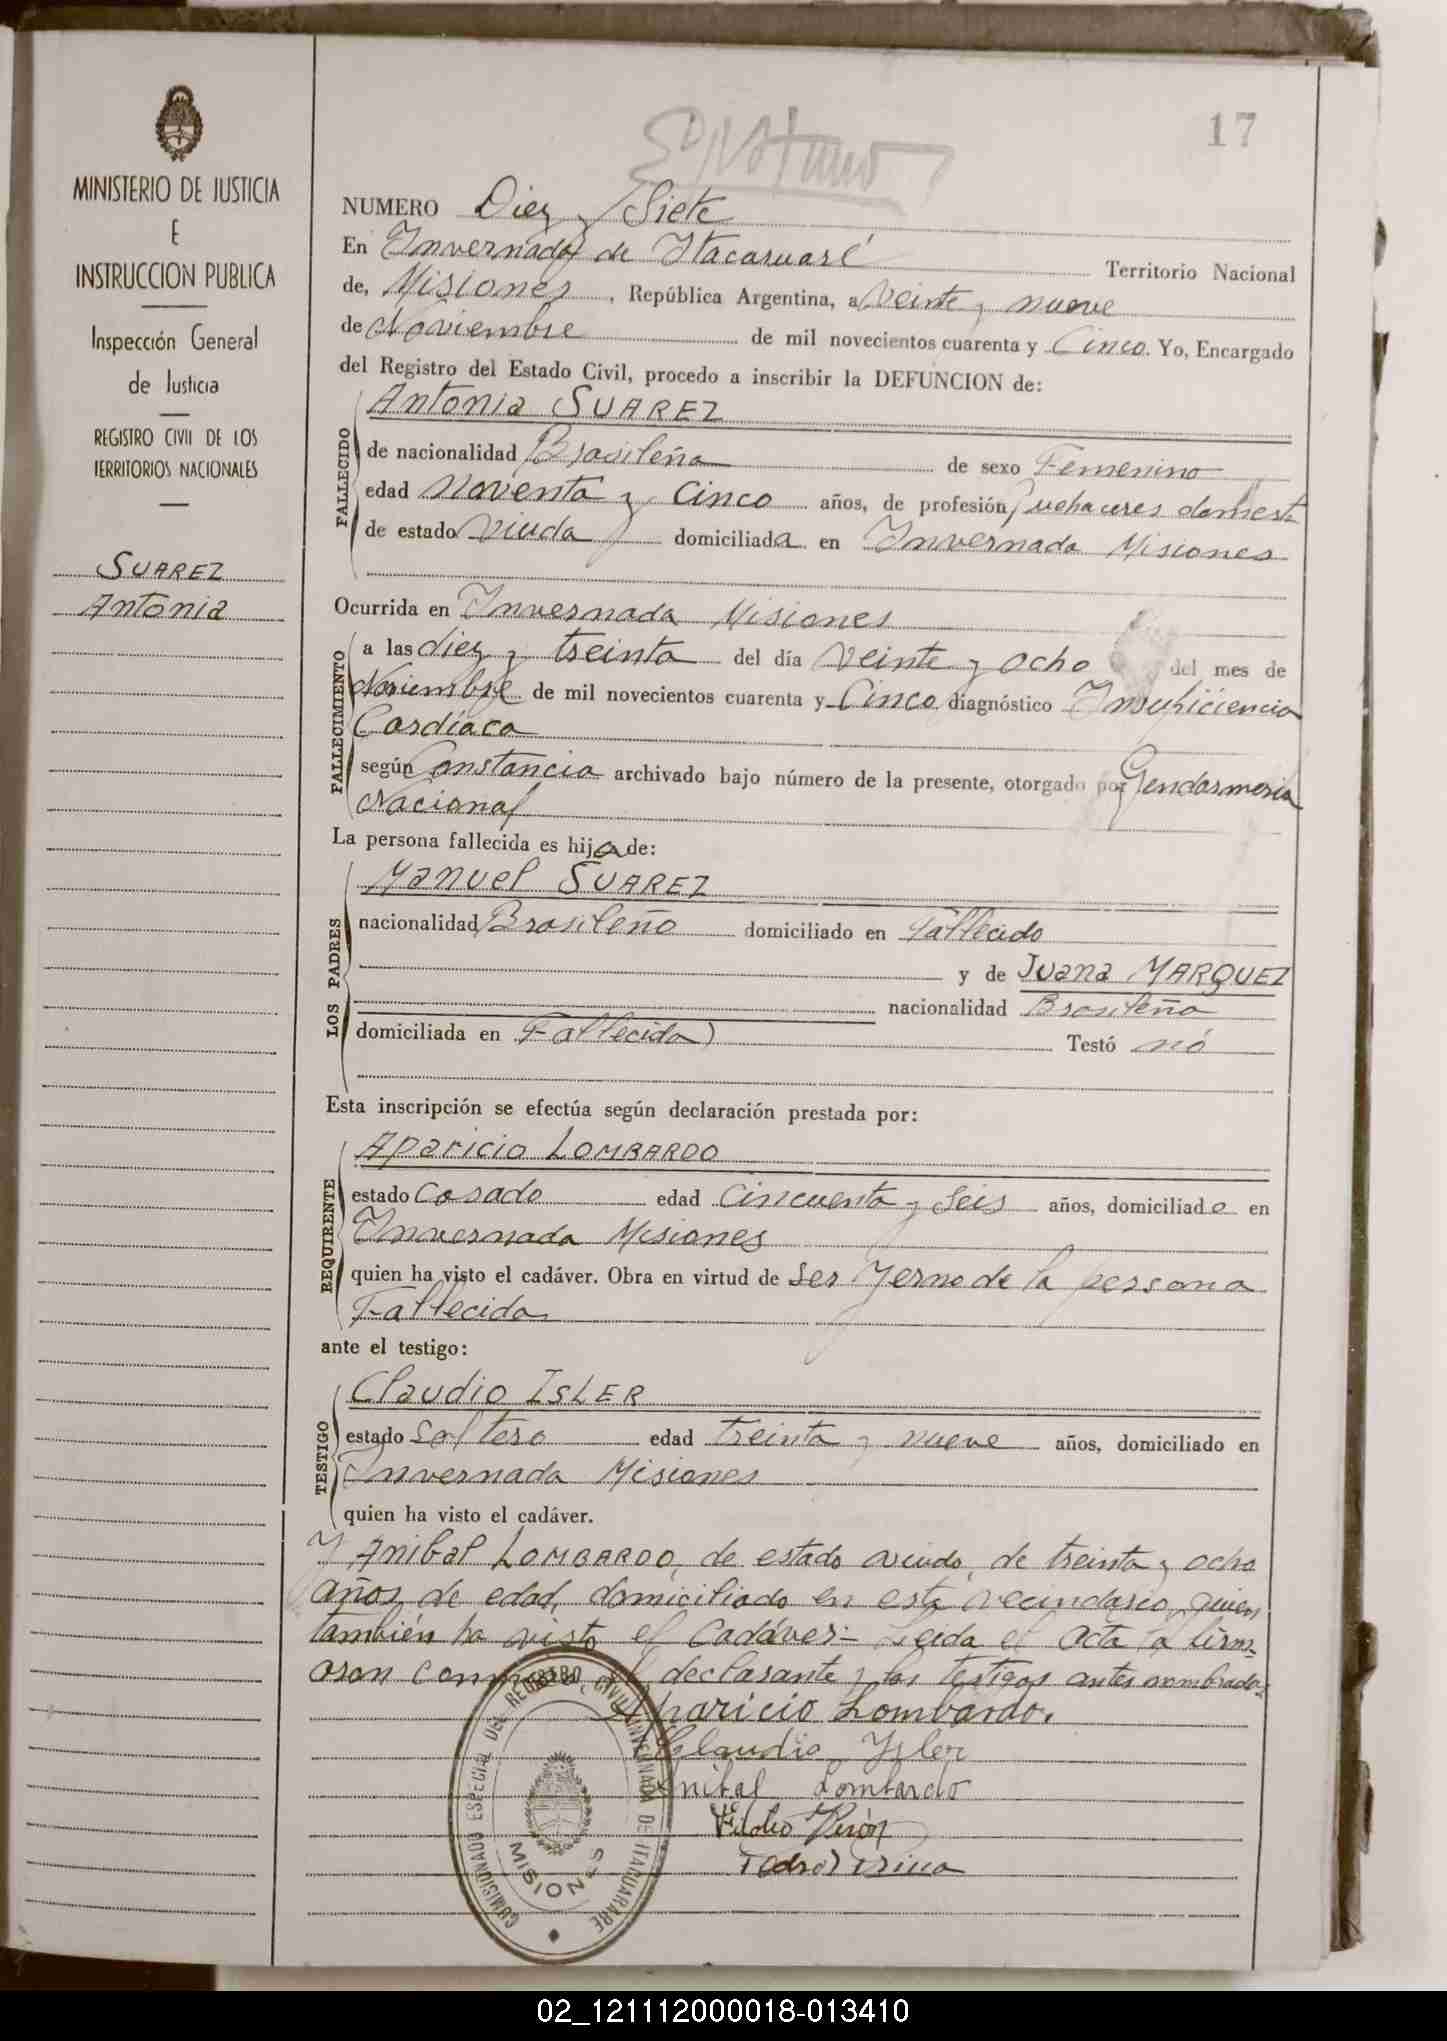 17
MINISTERIO DE JUSTICIA
E
INSTRUCCION PUBLICA
Inspección General
de Justicia
REGISTRO CIVIL DE LOS
TERRITORIOS NACIONALES
SUAREZ
Antonia
NUMERO Diez y Siete
En Invernada de Itacaruaré Territorio Nacional
de, Misiones, República Argentina, a veinte y nueve
de Noviembre de mil novecientos cuarenta y Cinco. Yo, Encargado
del Registro del Estado Civil, procedo a inscribir la DEFUNCION de:
Antonia SUAREZ
FALLECIDO
de nacionalidad Brasileña de sexo Femenino
edad noventa y cinco años, de profesión quehaceres domest
de estado viuda domiciliada en Invernada Misiones
Ocurrida en Invernada Misiones
FALLECIMIENTO
a las diez y treinta del día veinte y ocho del mes de
Noviembre de mil novecientos cuarenta y Cinco diagnóstico Insuficiencia
Cardíaca
según Constancia archivado bajo número de la presente, otorgado por Gendarmeria
Nacional
La persona fallecida es hija de:
LOS PADRES
Manuel SUAREZ
nacionalidad Brasileño domiciliado en Fallecido
y de Juana MARQUEZ
nacionalidad Brasileña
domiciliada en Fallecida Testó nó
Esta inscripción se efectúa según declaración prestada por:
REQUIRENTE
Aparicio LOMBARDO
estado Casado edad cincuenta y seis años, domiciliado en
Invernada Misiones
quien ha visto el cadáver. Obra en virtud de ser yerno de la persona
Fallecida
ante el testigo:
TESTIGO
Claudio ISLER
estado soltero edad treinta y nueve años, domiciliado en
Invernada Misiones
quien ha visto el cadáver.
y Anibal LOMBARDO, de estado viudo, de treinta y ocho
años de edad, domiciliado en este vecindario, quien
también ha visto el cadáver.- Leida el acta la firm-
aron conmigo, el declarante y los testigos antes nombrados
Aparicio Lombardo.
Claudio Isler
Anibal Lombardo
COMISIONADO ESPECIAL DEL REGISTRO CIVIL INVERNADA DE ITACUARARE
MISIONES
02_121112000018-013410